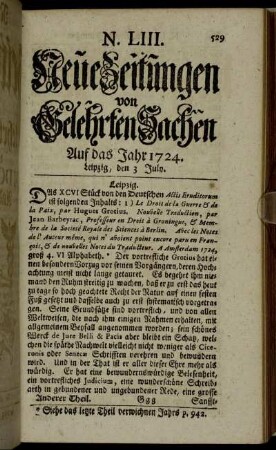 N. LIII. 529
Neue Zeitungen
von
Gelehrten Sachen
Auf das Jahr 1724.
Leipzig, den 3 July.
Leipzig.
DAs XCVI Stück von den Deutschen Actis Eruditorum
ist folgenden Inhalts: 1) Le Droit de la Guerre & de
la Paix, par Hugues Grotius. Nouvelle Traduction, par
Jean Barbeyrac, Professeur en Droit à Groningue, & Mem-
bre de la Societé Royale des Sciences à Berlin. Avec les Notes
de l' Auteur même, qui n' avoient point encore paru en Fran-
çois, & de nouvelles Notes du Traducteur. A Amsterdam 1724,
groß 4. VI Alphabeth. * Der vortrefliche Grotius hat ei-
nen besondern Vorzug vor seinen Vorgängern, deren Hoch-
achtung meist nicht lange getauret. Es begehrt ihm nie-
mand den Ruhm streitig zu machen, daß er zu erst das heut
zu tage so hoch geachtete Recht der Natur auf einen festen
Fuß gesetzt und dasselbe auch zu erst systematisch vorgetra-
gen. Seine Grundsätze sind vortreflich, und von allen
Weltweisen, die nach ihm einigen Nahmen erhalten, mit
allgemeinem Beyfall angenommen worden; sein schönes
Werck de Jure Belli & Pacis aber bleibt ein Schatz, wel-
chen die späthe Nachwelt vielleicht nicht weniger als Cice-
ronis oder Senecæ Schrifften verehren und bewundern
wird. Und in der That ist er aller dieser Ehre mehr als
würdig. Er hat eine bewundernswürdige Belesenheit,
ein vortrefliches Judicium, eine wunderschöne Schreib-
arth in gebundener und ungebundener Rede, eine grosse
Anderer Theil. Ggg Sanfft-
* Siehe das letzte Theil verwichnen Jahrs p. 942.